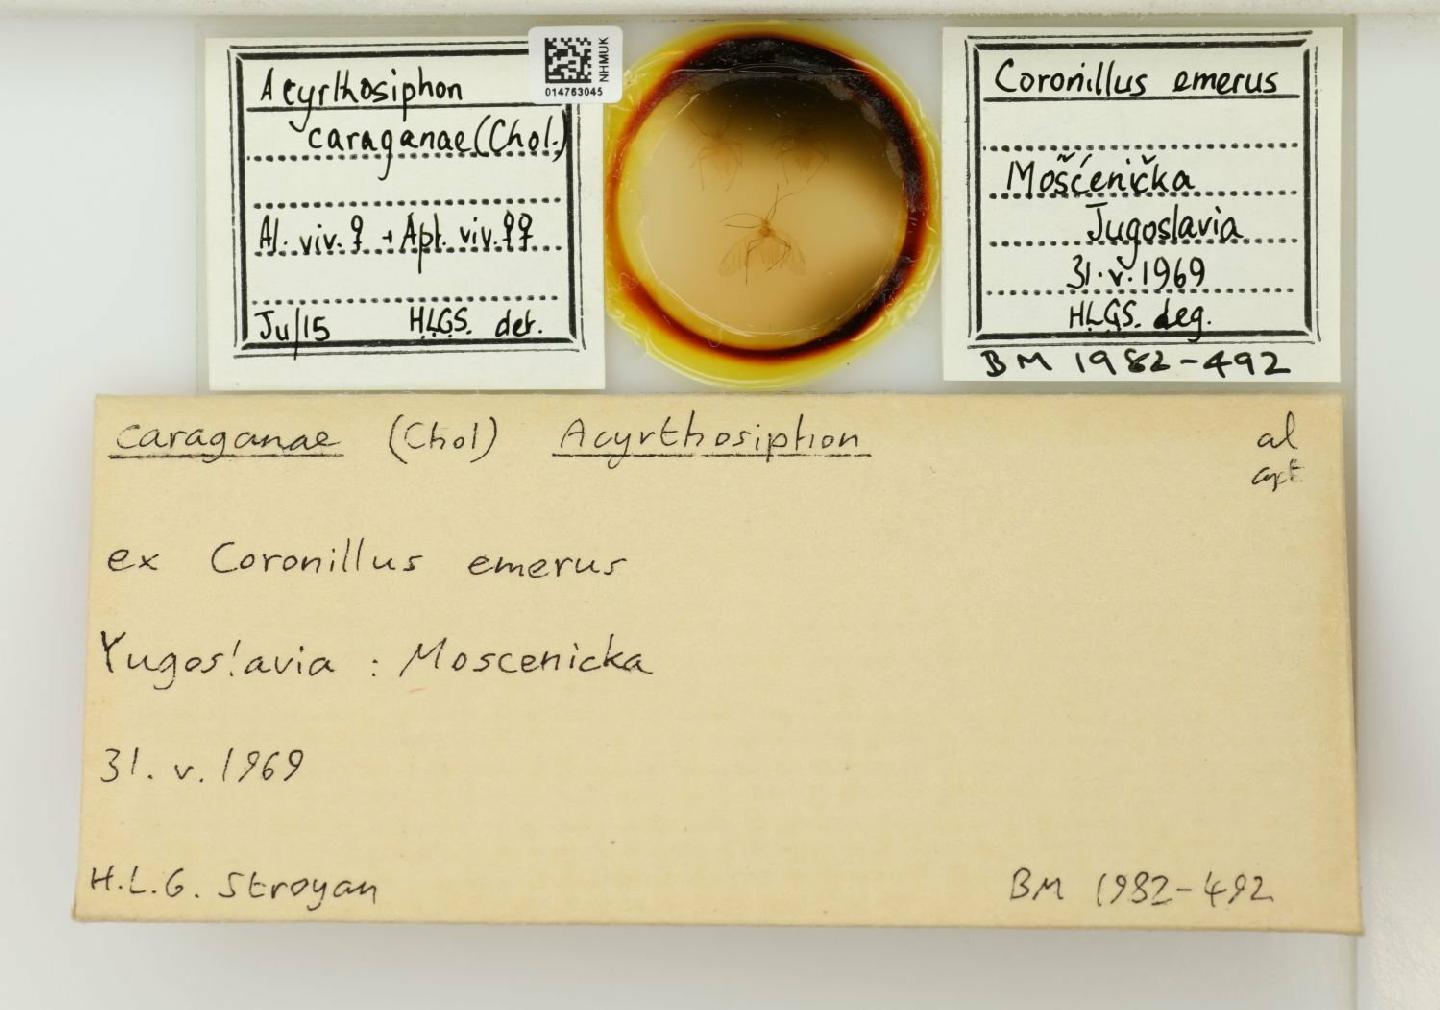 Acyrthosiphon
caraganae (Chol.)
Al. viv. ♀ + Apt. viv. ♀♀
Ju/15 H.L.G.S. det.
NHMUK
014763045
Coronillus emerus
Mošćenička
Jugoslavia
31.v.1969
H.L.G.S. leg.
BM 1982-492
caraganae (Chol) Acyrthosiphon al
apt
ex Coronillus emerus
Yugoslavia : Moscenicka
31. v. 1969
H.L.G. Stroyan BM 1982-492